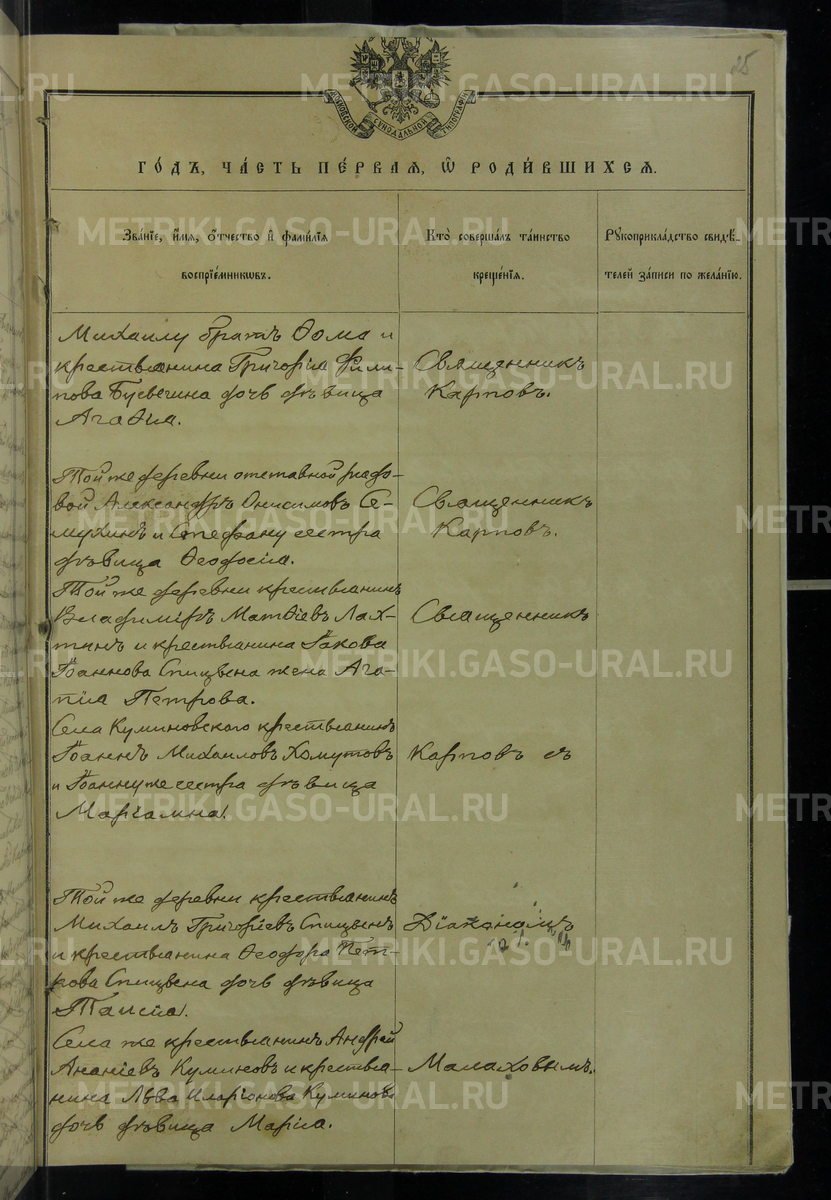 25
МОСКОВСКОЙ СѴНОДАЛЬНОЙ ТИПОГРАФІИ
ГО́ДЪ, ЧА́СТЬ ПЕ́РВАЯ, Ѡ҆ РОДИ́ВШИХСЯ.
Зва́нїе, и҆́мя, ѻ҆́тчество и҆ фами́лїя
воспрїе́мникѡвъ.
Кто̀ совершáлъ тáинство
креще́нїя.
Рꙋкоприкла́дство свидѣ-
телей за́писи по жела́нїю.
Михаилу братъ Ѳома и
крестьянина Григорія Фили-
пова Бусвечина дочь дѣвица
Агаѳія.
Священникъ
Карповъ.
Той же деревни отставной рядо-
вой Александръ Онисимовъ Се-
мухинъ и Стефану сестра
дѣвица Ѳеодосія.
Священникъ
Карповъ.
Той же деревни крестьянинъ
Владиміръ Матѳіевъ Лах-
тинъ и крестьянина Іакова
Іоаннова Спицвена жена Ага-
пія Петрова.
Священникъ
Села Куминовского крестьянинъ
Іоаннъ Михаиловъ Хомутовъ
и Іоанну же сестра дѣвица
Маріамна.
Карповъ съ
Той же деревни крестьянинъ
Михаилъ Григоріевъ Спицвенъ
и крестьянина Ѳеодора Пет-
рова Спицвена дочь дѣвица
Таисія.
Діакономъ
Села же крестьянинъ Андрей
Ананіевъ Куминовъ и крестья-
нина Льва Иларіонова Куминова
дочь дѣвица Марія.
Малаховымъ.
METRIKI.GASO-URAL.RU